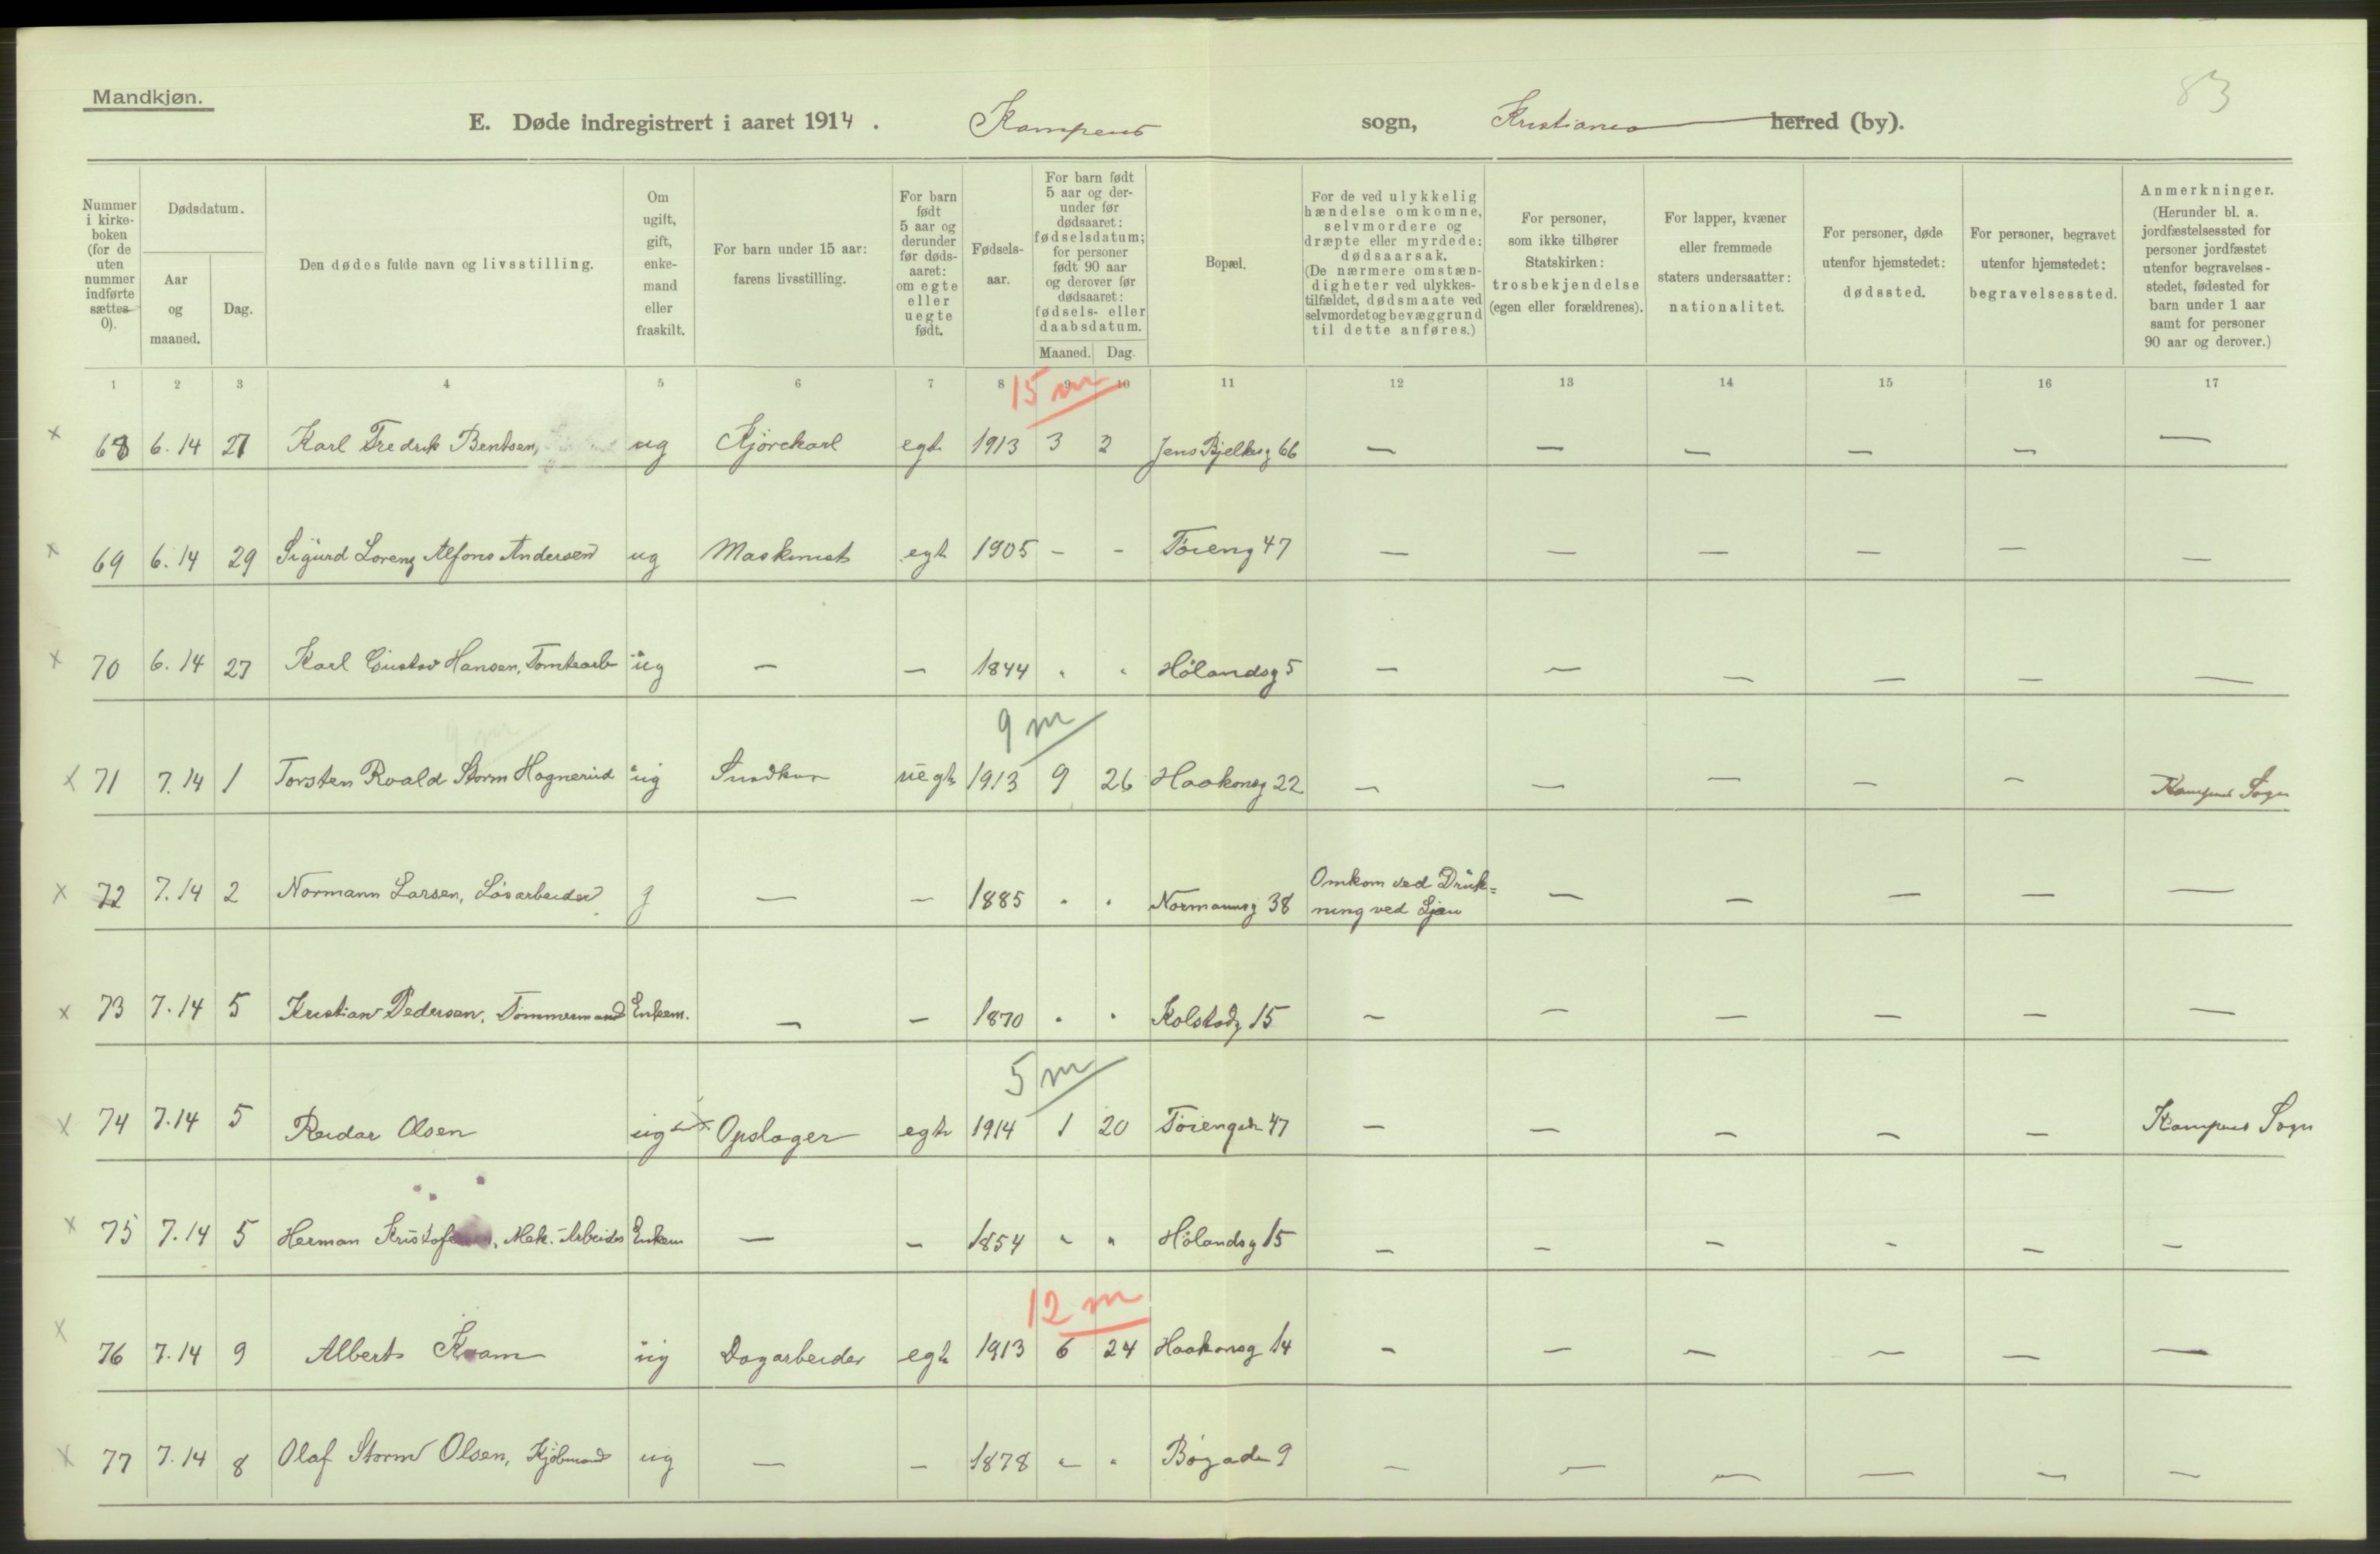 83
Mandkjøn.
E. Døde indregistrert i aaret 1914. Kampens sogn, Kristiania herred (by).
Nummer i kirkeboken (for de uten nummer indførte sættes 0).
Dødsdatum.
Aar og maaned.
Dag.
Den dødes fulde navn og livsstilling.
Om ugift, gift, enkemand eller fraskilt.
For barn under 15 aar: farens livsstilling.
For barn født 5 aar og derunder før dødsaaret: om egte eller uegte født.
Fødselsaar.
For barn født 5 aar og derunder før dødsaaret: fødselsdatum; for personer født 90 aar og derover før dødsaaret: fødsels- eller daabsdatum.
Maaned. Dag.
Bopæl.
For de ved ulykkelig hændelse omkomne, selvmordere og dræpte eller myrdede: dødsaarsak. (De nærmere omstændigheter ved ulykkestilfældet, dødsmaate ved selvmordet og bevæggrund til dette anføres.)
For personer, som ikke tilhører Statskirken: trosbekjendelse (egen eller forældrenes).
For lapper, kvæner eller fremmede staters undersaatter: nationalitet.
For personer, døde utenfor hjemstedet: dødssted.
For personer, begravet utenfor hjemstedet: begravelsessted.
Anmerkninger. (Herunder bl. a. jordfæstelsessted for personer jordfæstet utenfor begravelsesstedet, fødested for barn under 1 aar samt for personer 90 aar og derover.)
1 2 3 4 5 6 7 8 9 10 11 12 13 14 15 16 17
15 m
x 68 6.14 27 Karl Fredrik Bentsen, ug Kjørekarl egte 1913 3 2 Jens Bjelkesg 66 — — — — — —
x 69 6.14 29 Sigurd Lorenz Alfons Andersen ug Maskinist egte 1905 - - Tøieng 47 — — — — — —
x 70 6.14 27 Karl Gustav Hansen, Tomtearb ug — — 1844 " " Hølandsg 5 — — — — — —
9 m
x 71 7.14 1 Torsten Roald Storm Hagnerud ug Snedker uegte 1913 9 26 Haakonsg 22 — — — — — Kampens Sogn
x 72 7.14 2 Normann Larsen, Løsarbeider g — — 1885 " " Normannsg 38 Omkom ved Druk=
ning ved Ljan — — — — —
x 73 7.14 5 Kristian Pedersen, Tømmermand Enkem. — — 1870 " " Kolstadg 15 — — — — — —
5 m
x 74 7.14 5 Reidar Olsen ug Opslager egte 1914 1 20 Tøiengt 47 — — — — — Kampens Sogn
x 75 7.14 5 Herman , Mek. Arbeider Enkem — — 1854 " " Hølandsg 15 — — — — — —
12 m
x 76 7.14 9 Albert Kvam ug Dagarbeider egte 1913 6 24 Haakonsg 14 — — — — — —
x 77 7.14 8 Olaf Storm Olsen, Kjøbmand ug — — 1878 " " Bøgade 9 — — — — — —